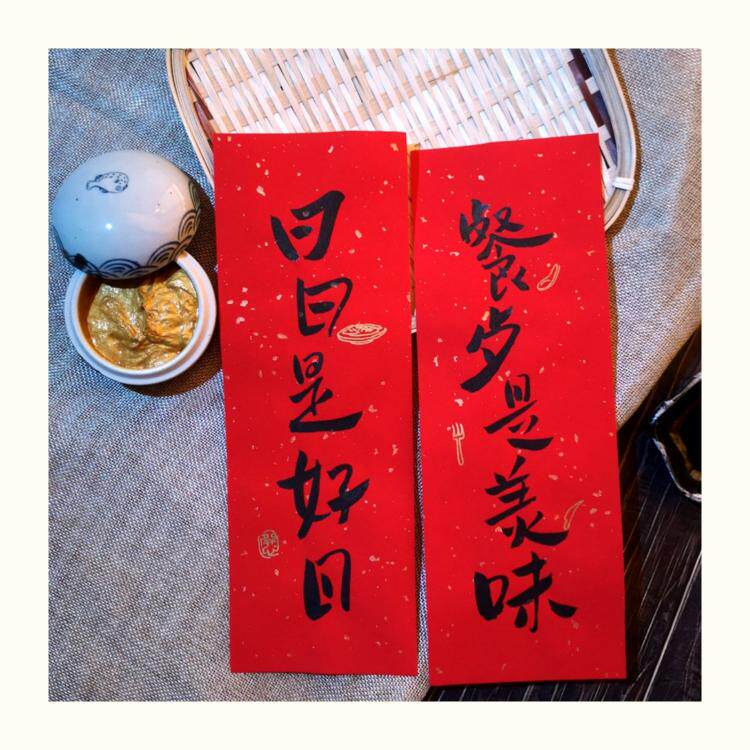 餐歺是美味
日日是好日